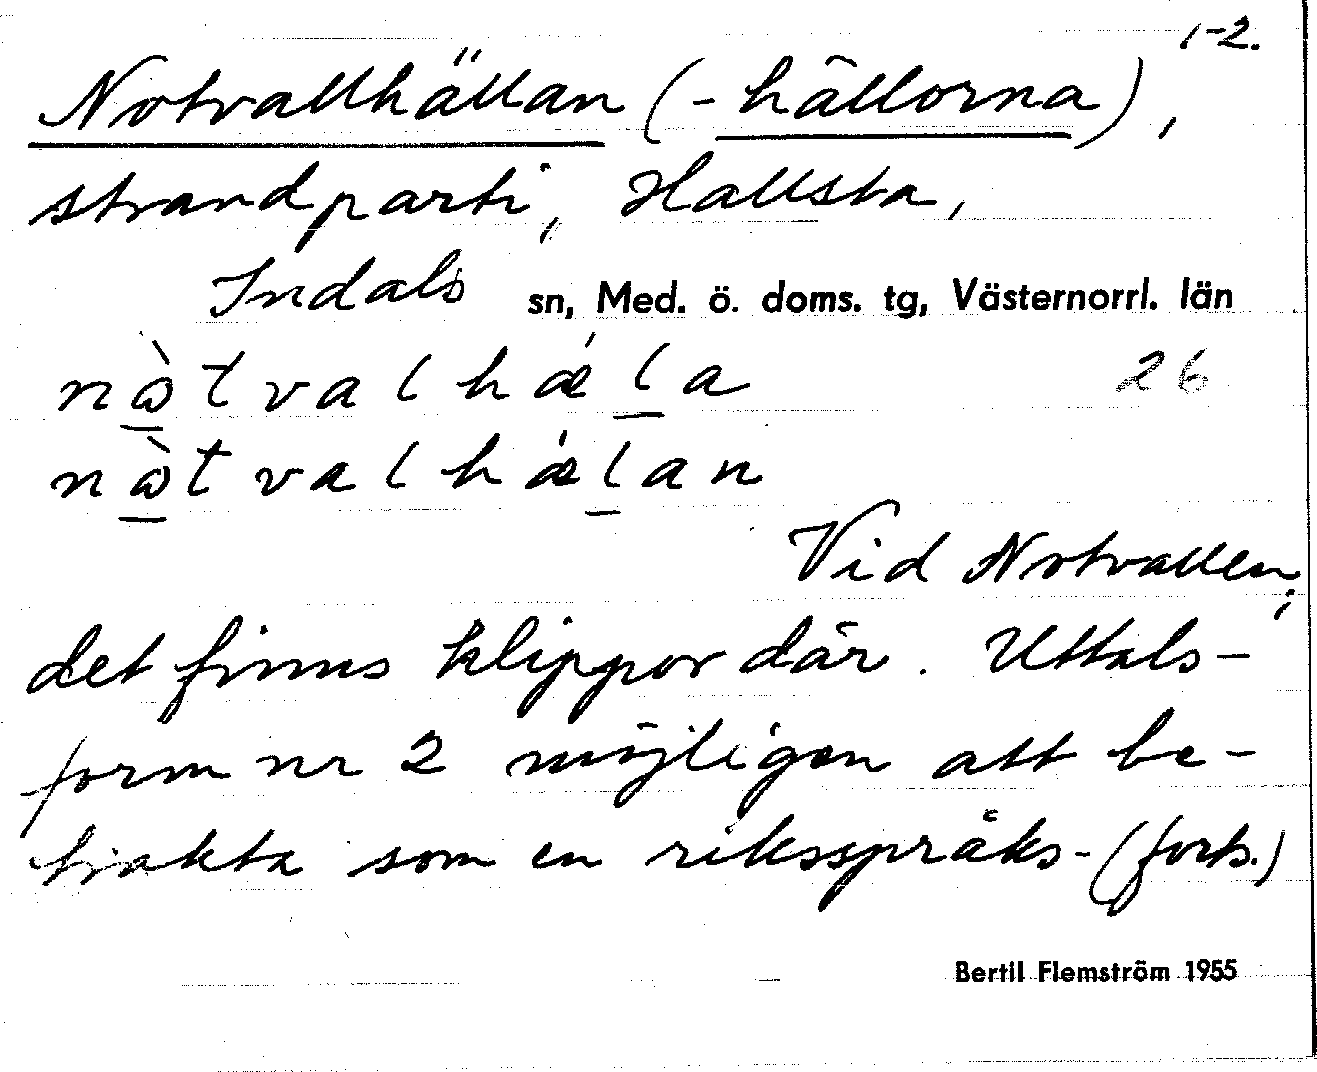 1-2.
Notvallhällan (-hällorna),
strandparti, Hallsta,
Indals sn, Med. ö. doms. tg, Västernorrl. län
nɷ̀tvalhǽla 26
nɷ̀tvalhǽlan
Vid Notvallen;
det finns klippor där. Uttals-
form nr 2 möjligen att be-
trakta som en riksspråks-(forts.)
Bertil Flemström 1955